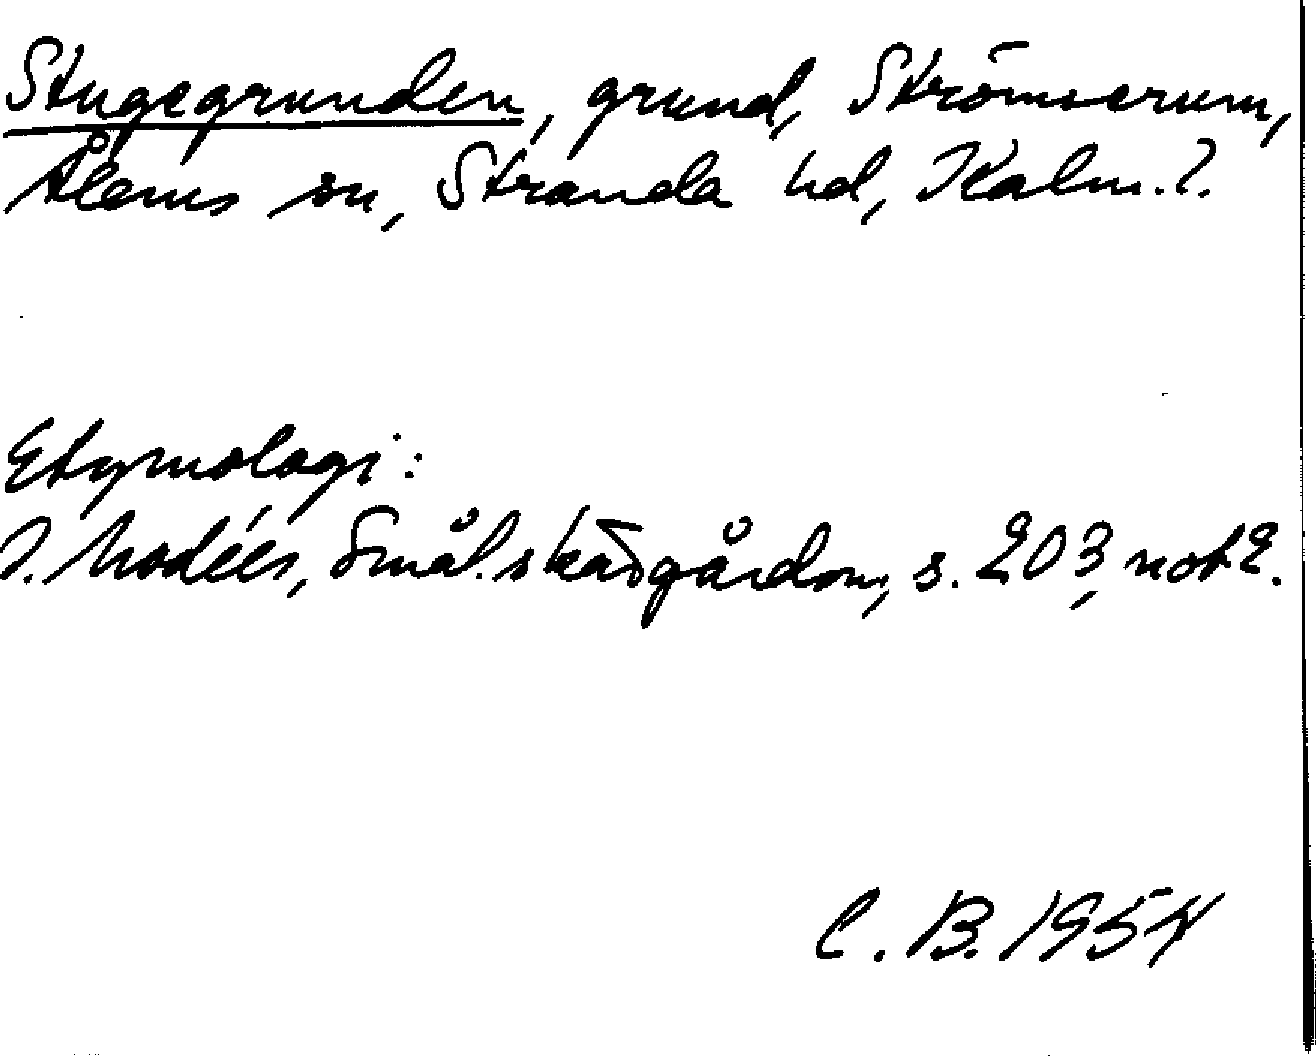 Stugegrunden, grund, Strömserum,
Ålems sn, Stranda hd, Kalm. l.
Etymologi:
I. Modéer, Smål. skärgårdsn, s. 203, not 2.
C. B. 1954